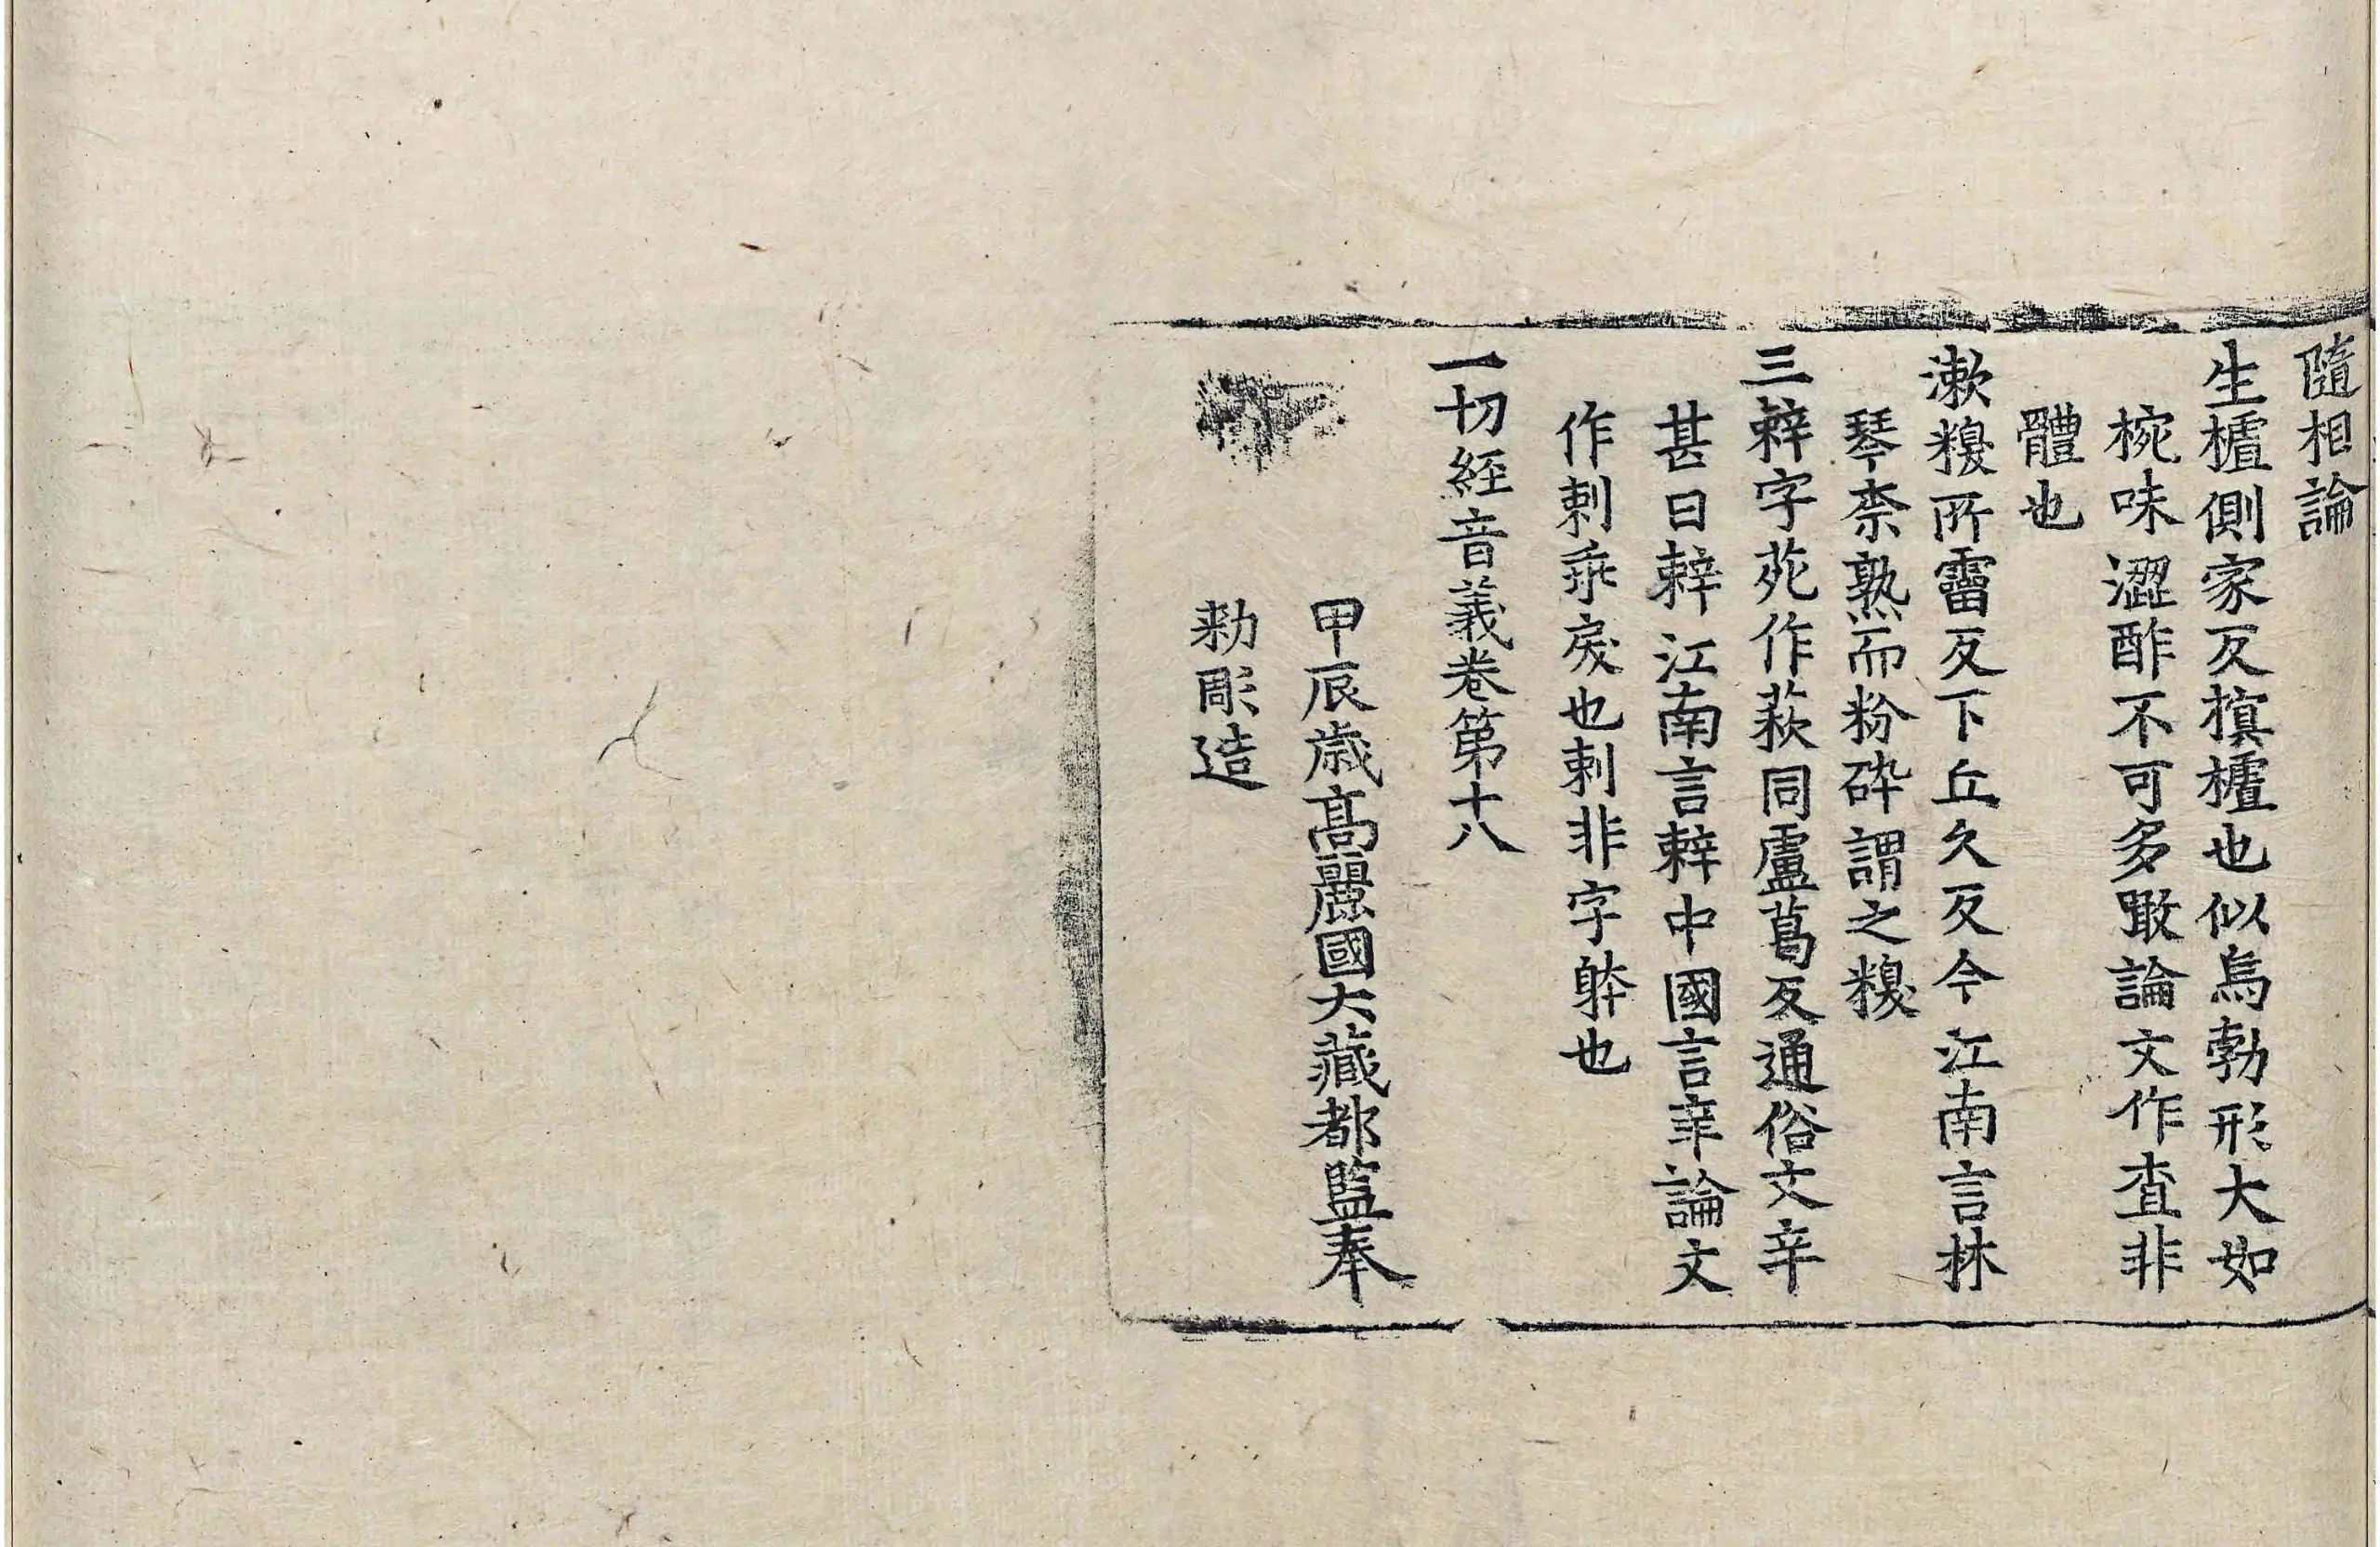 隨相論
生樝側家反㯰樝也似烏勃形大如
梡味澀酢不可多噉論文作查非
體也
漱糗所霤反下丘久反今江南言林
琴柰熟而粉碎謂之糗
三𢐎字苑作䔅同盧葛反通俗文辛
甚曰𢐎江南言𢐎中國言辛論文
作剌乖戾也剌非字躰也
一切經音義卷第十八
甲辰歲高麗國大藏都監奉
勅彫造